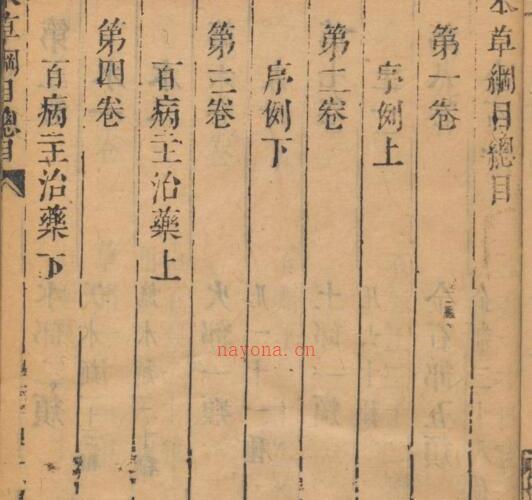 本草綱目總目
第一卷
序例上
第二卷
序例下
第三卷
百病主治藥上
第四卷
百病主治藥下
本草綱目總目
nayona.cn